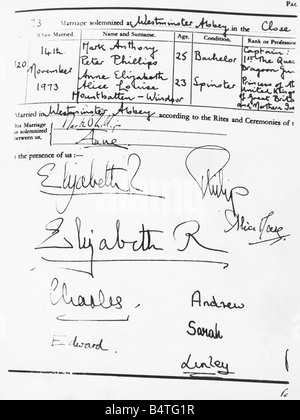 Pa
73 Marriage solemnized at Westminster Abbey in the Close
When Married. Name and Surname. Age. Condition. Rank or Professio
120 14th November 1973 Mark Anthony Peter Phillips 25 Bachelor Captain 1st The Que Dragoon
Anne Elizabeth Alice Louise Mountbatten-Windsor 23 Spinster Princess of the United Kingdom of Great Britain and Northern Ire
Married in Westminster Abbey according to the Rites and Ceremonies of
his Marriage
as solemnized
between us,
Mark Phillips
Anne
in the presence of us:—
Elizabeth R
Philip
Elizabeth R
Charles
Andrew
Edward
Sarah
Linley
alamy
B4TG1R